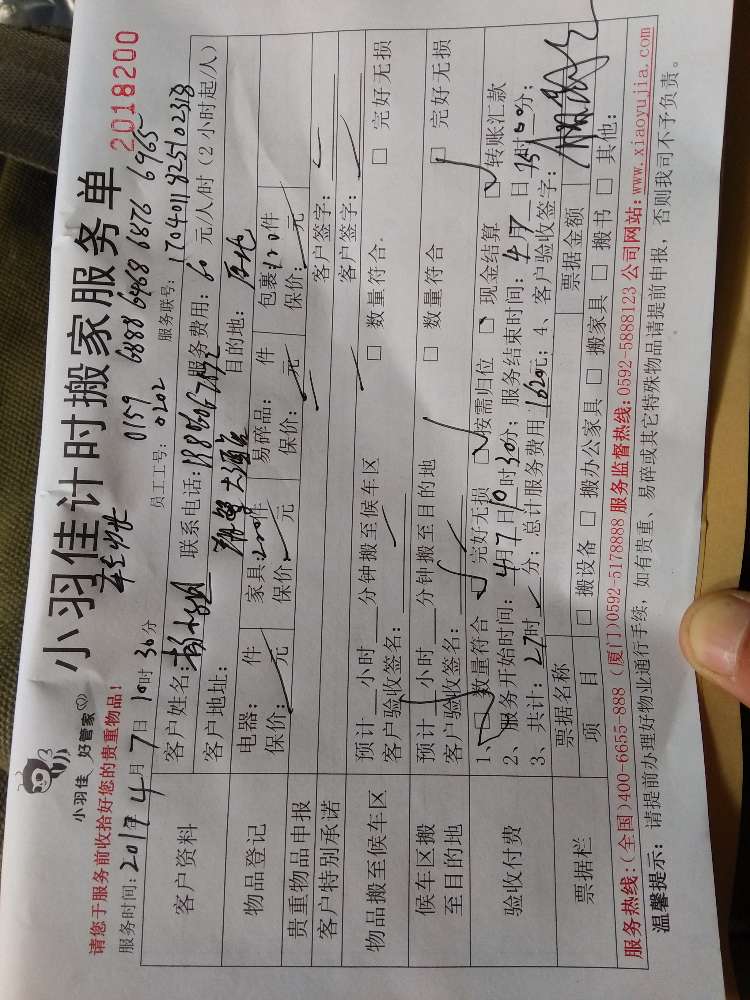 小羽佳 好管家
小羽佳计时搬家服务单
2018200
0159 6888 6468 6876 6965
请您于服务前收拾好您的贵重物品!
员工工号: 0202 服务联号: 1704011825102318
服务时间: 2017年4月7日10时30分
客户资料
客户姓名: 联系电话: 服务费用: 60 元/人/时 (2小时起/人)
客户地址: 目的地:
物品登记
电器: 件 家具: 件 易碎品: 件 包裹: 件
保价: 元 保价: 元 保价: 元 保价: 元
贵重物品申报 客户签字:
客户特别承诺 客户签字:
物品搬至候车区
预计 小时 分钟搬至候车区 □ 数量符合. □ 完好无损
客户验收签名:
候车区搬至目的地
预计 小时 分钟搬至目的地 数量符合 □ 完好无损
客户验收签名:
验收付费
1、□ 数量符合 □ 完好无损 □ 按需归位 □ 现金结算 □ 转账汇款
2、服务开始时间: 4月7日10时30分; 服务结束时间: 4月7日15时00分;
3、共计: 27时 分; 总计服务费用 1620元; 4、客户验收签字:
票据栏
票据名称 票据金额
项 目 □ 搬设备 □ 搬办公家具 □ 搬家具 □ 搬书 □ 其他:
服务热线: (全国)400-6655-888 (厦门)0592-5178888 服务监督热线: 0592-5888123 公司网站: www.xiaoyujia.com
温馨提示: 请提前办理好物业通行手续, 如有贵重、易碎或其它特殊物品请提前申报, 否则我司不予负责。